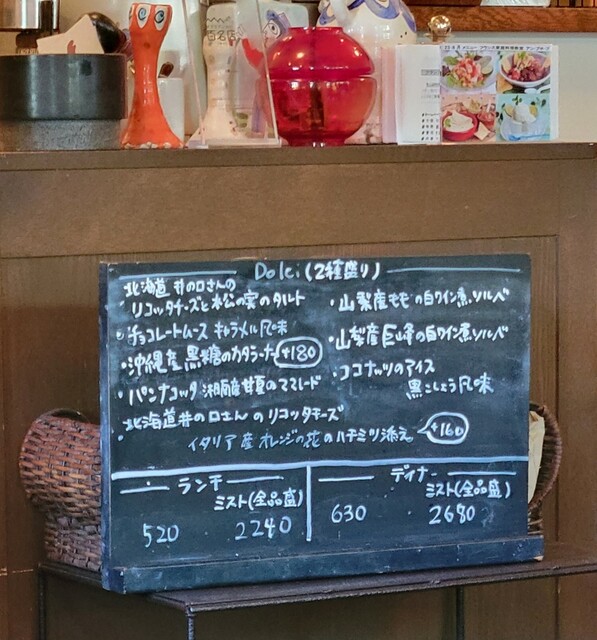 Dolci (2種盛り)
・北海道 井の口さんの
リコッタチーズと松の実のタルト
・チョコレートムース キャラメル風味
・沖縄産 黒糖のカタラーナ +180
・パンナコッタ 湘南産甘夏のママレード
・北海道井の口さんのリコッタチーズ
イタリア産オレンジの花のハチミツ添え +160
・山梨産ももの白ワイン煮、ソルベ
・山梨産巨峰の白ワイン煮、ソルベ
・ココナッツのアイス
黒こしょう風味
ランチ
ミスト(全品盛)
520 2240
ディナー
ミスト(全品盛)
630 2680